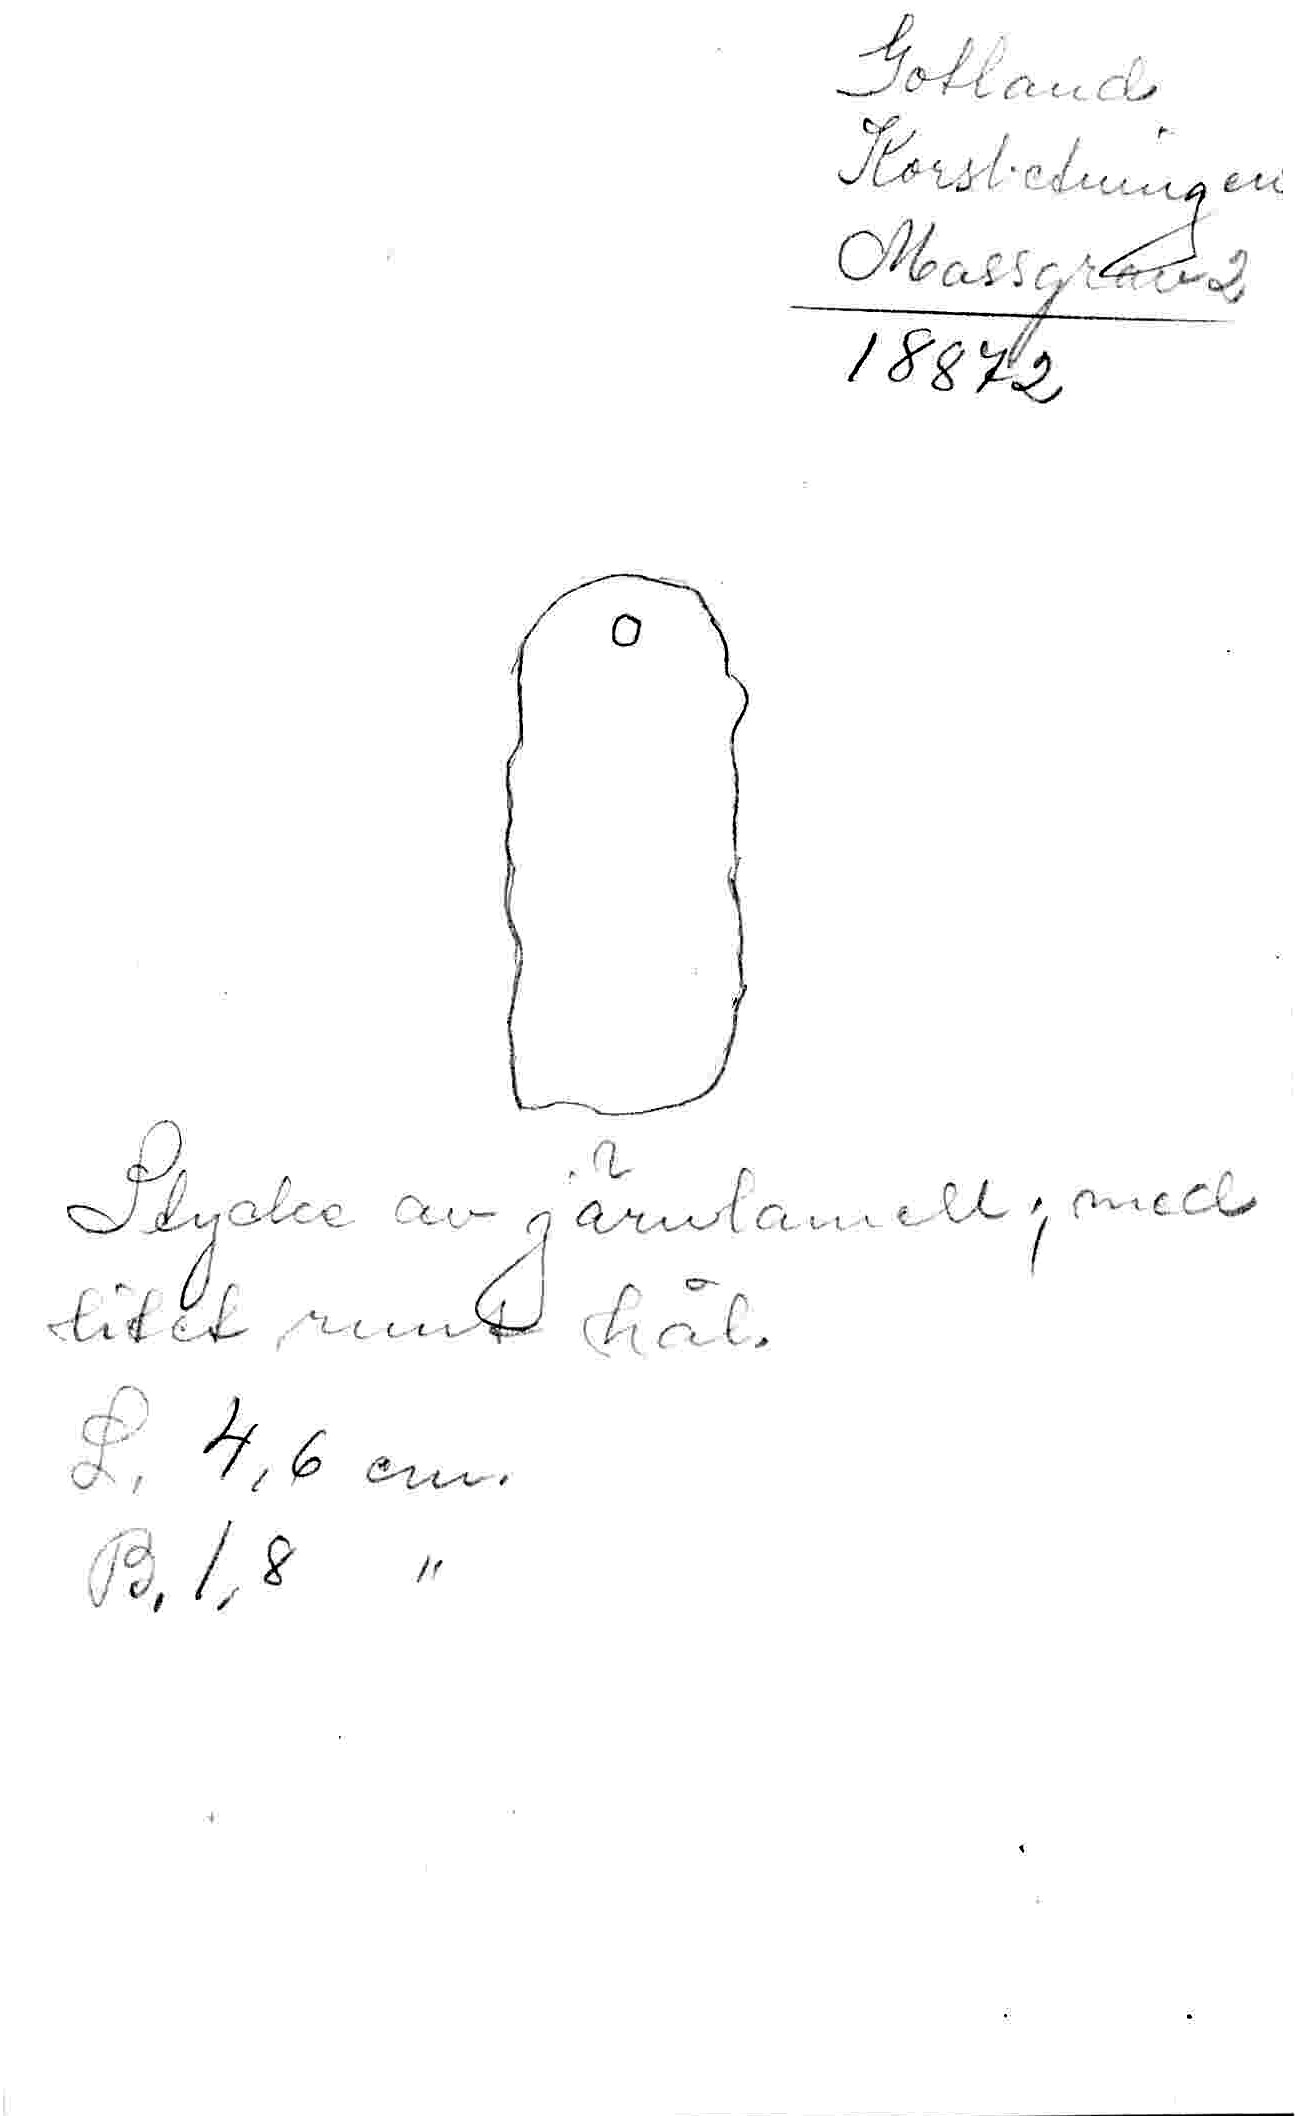 Gotland
Korsbetningen
Massgrav 2
18872
Stycke av järnlamell, med
litet runt hål.
L. 4,6 cm.
B. 1,8 "